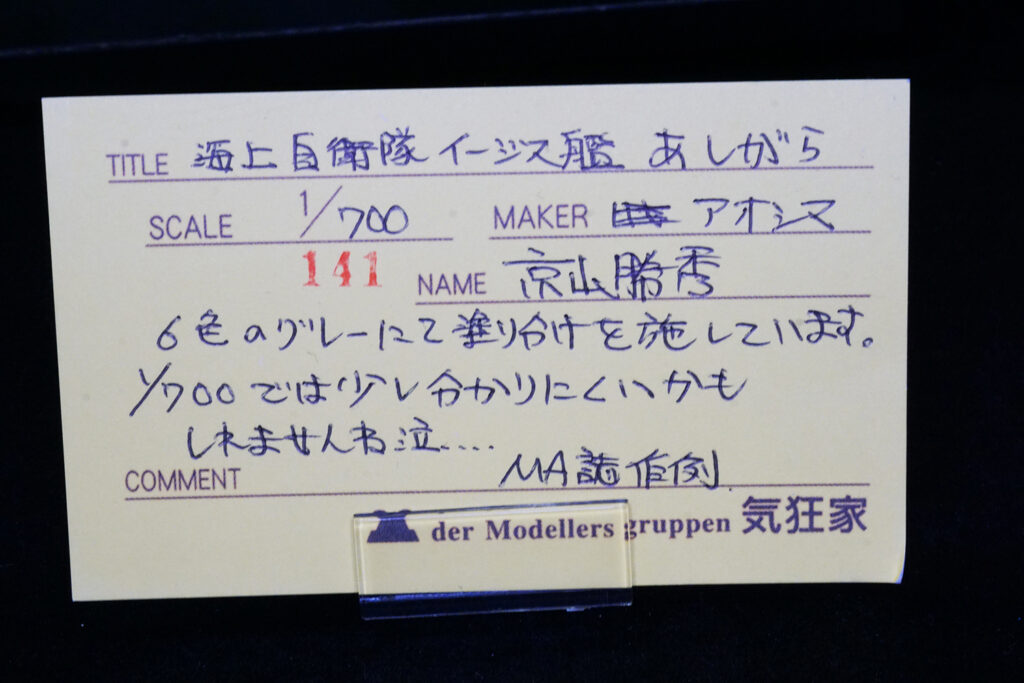 TITLE 海上自衛隊イージス艦 あしがら
SCALE 1/700 MAKER アオシマ
141 NAME 京山勝秀
6色のグレーにて塗り分けを施しています。
1/700では少し分かりにくいかも
しれませんね泣....
COMMENT MA誌作例
der Modellers gruppen 気狂家